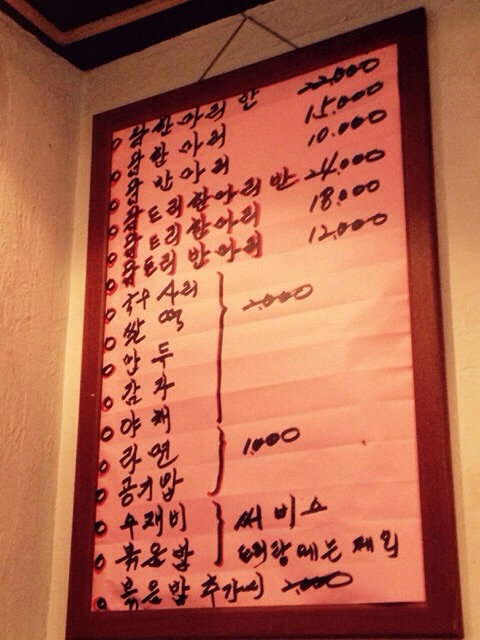 닭 한마리 반 22.000
닭 한 마리 15.000
닭 반 마리 10.000
닭도리 한마리 반 24.000
닭도리 한마리 18.000
닭도리 반 마리 12.000
국수 사리
쌀 떡
만 두
감 자
야 채
2.000
라 면
공기밥
1.000
수제비
볶음밥
써비스
매랑메는 제외
볶은밥 추가시 2.000